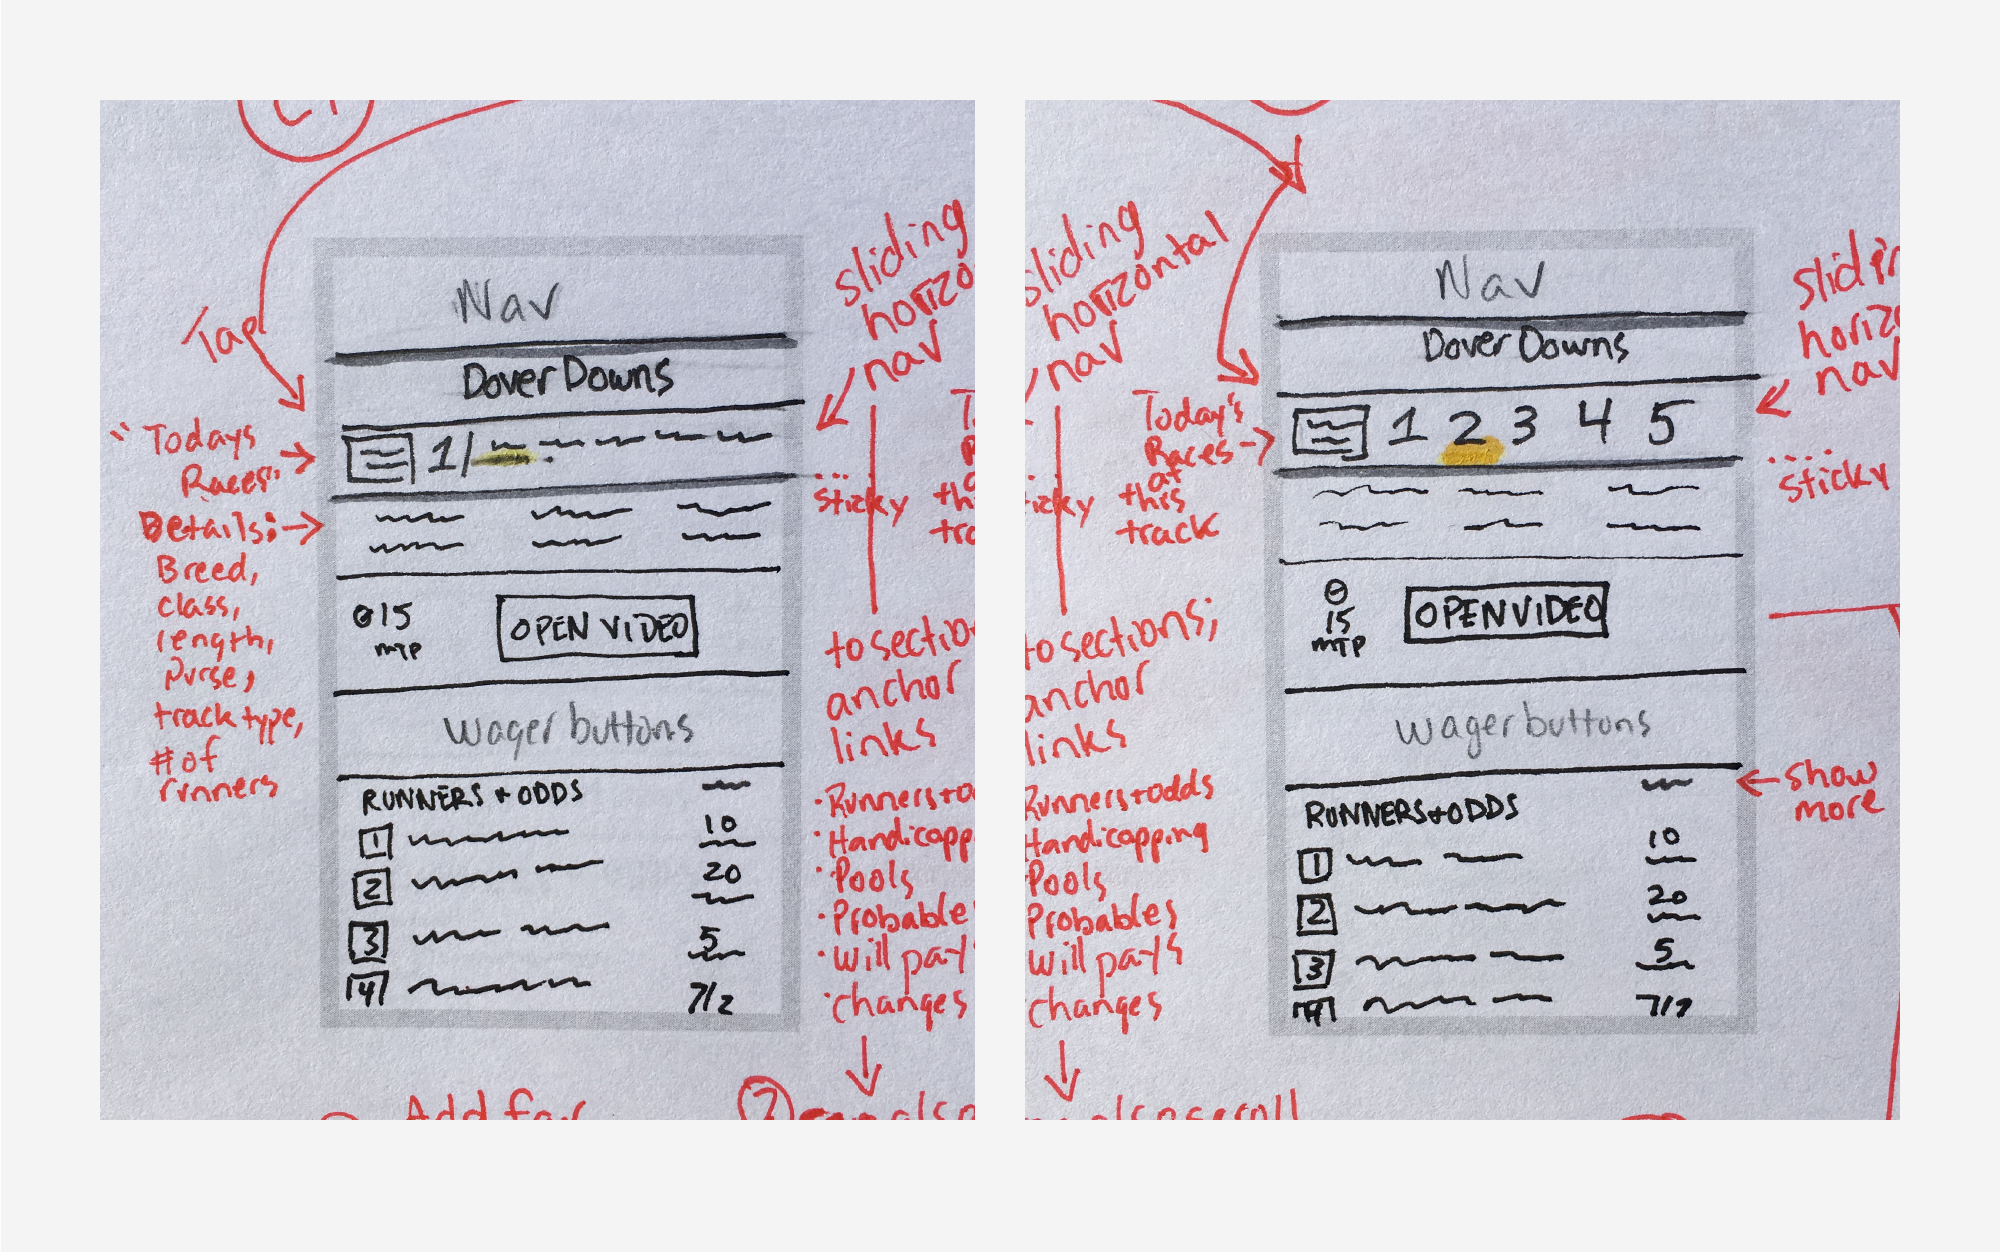 Tap
Nav
Dover Downs
"Todays
Races"
1/
Details:
Breed,
class,
length,
purse,
track type,
# of
runners
15
MTP
OPEN VIDEO
Wager buttons
RUNNERS + ODDS
1
10
2
20
3
5
4
7/2
sliding
horizo
nav
sticky
to section
anchor
links
• Runners + o
• Handicapp
• Pools
• Probable
• Will pays
• changes
th
tra
Add for
2
sliding
horizontal
nav
to sections;
anchor
links
Runners + odds
Handicapping
Pools
Probables
Will pays
changes
also scroll
Today's
Races
at
this
track
Nav
Dover Downs
1 2 3 4 5
15
MTP
OPEN VIDEO
Wager buttons
RUNNERS + ODDS
1
10
2
20
3
5
4
7/2
horizo
nav
sticky
show
more